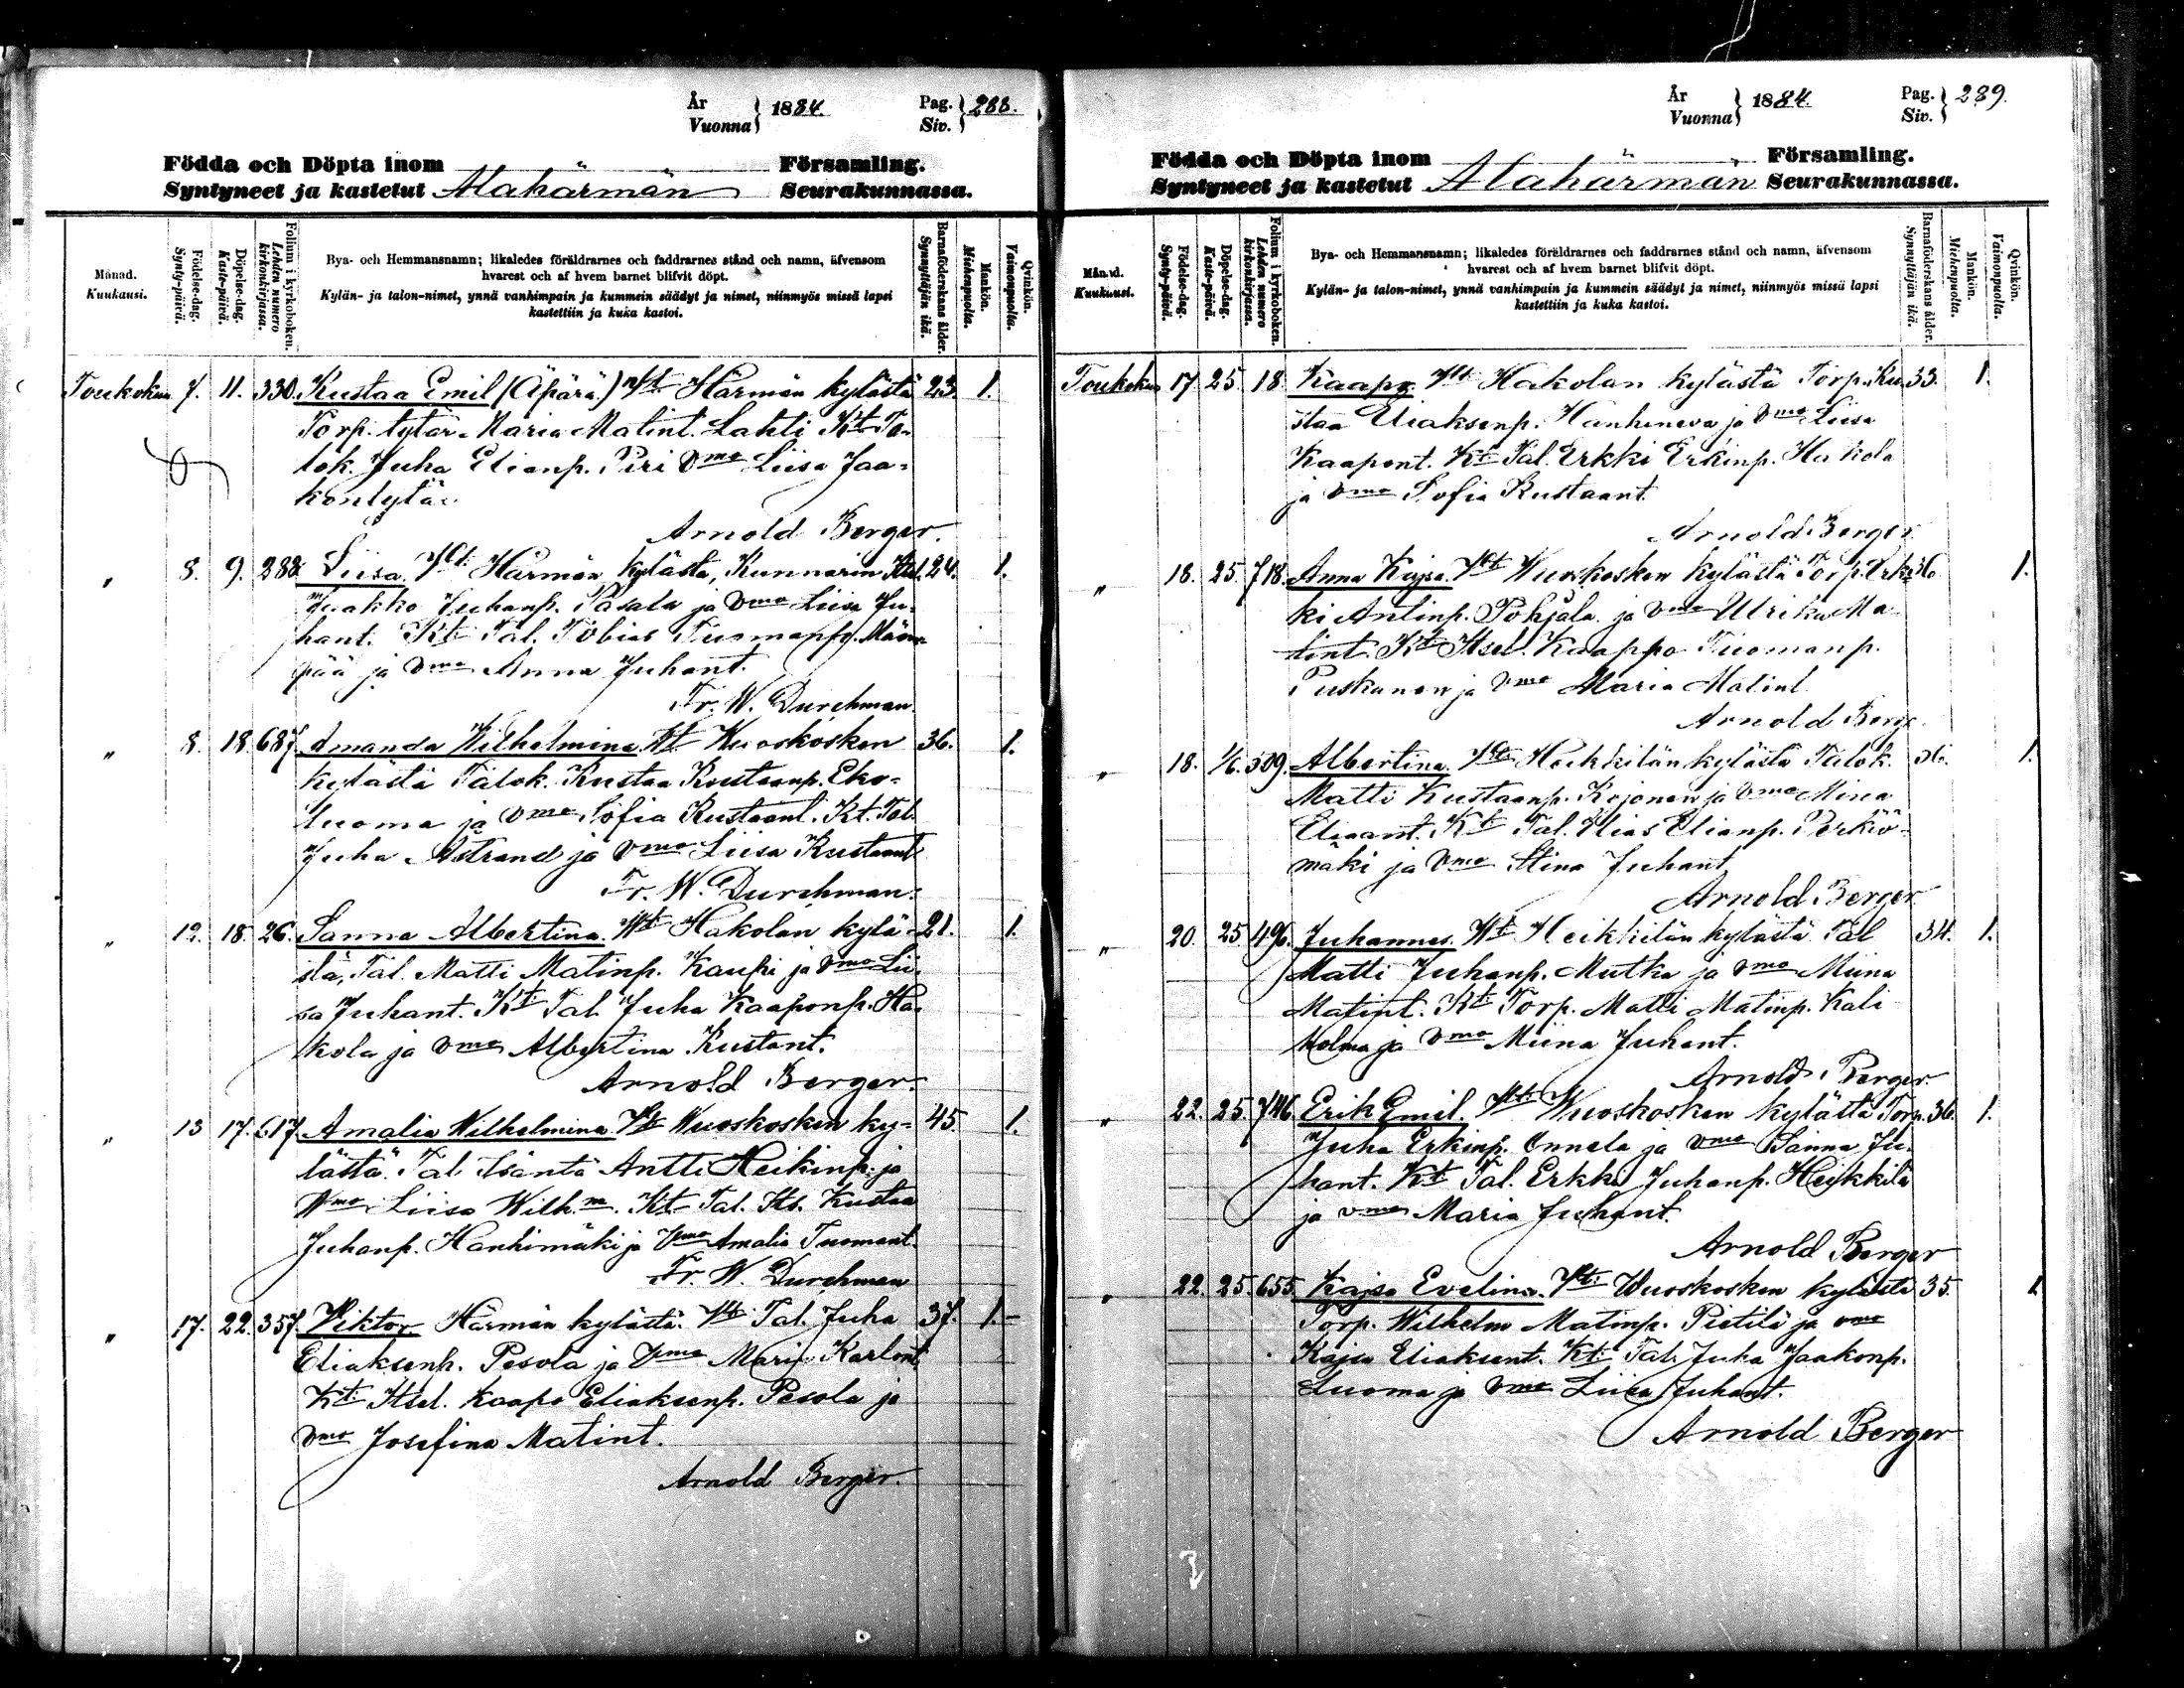 År
Vuonna } 1884.
Pag.
Siv. } 288.
Födda och Döpta inom Församling.
Syntyneet ja kastetut Alahärmän Seurakunnassa.
Månad.
Kuukausi.
Födelse-dag.
Synty-päivä.
Döpelse-dag.
Kaste-päivä.
Folium i kyrkoboken.
Lehden numero
kirkonkirjassa.
Bya- och Hemmansnamn; likaledes föräldrarnes och faddrarnes stånd och namn, äfvensom
hvarest och af hvem barnet blifvit döpt.
Kylän- ja talon-nimet, ynnä vanhimpain ja kummein säädyt ja nimet, niinmyös missä lapsi
kastettiin ja kuka kastoi.
Barnaföderskans ålder.
Synnyttäjän ikä.
Mankön.
Miehenpuolta.
Qvinkön.
Vaimonpuolta.
Toukokuu 7. 11. 330. Kustaa Emil (Äpärä) Vt Härmän kylästä 23. 1.
Torp. tytär Maria Matint. Lahti Kt Ta-
lok. Juha Elianp. Piri Vmo Liisa Jaa-
kontytär
Arnold Berger.
" 8. 9. 288 Liisa. Vt Härmän kylästä, Kunnarin Itsel. 24. 1.
Jaakko Juhanp. Pasala ja Vmo Liisa Ju-
hant. Kt Tal. Tobias Tuomanp. Mäen-
pää ja Vmo Anna Juhant.
Fr. W. Durchman.
" 8. 18. 687. Amanda Wilhelmina Vt Wuoskosken 36. 1.
kylästä Talok. Kustaa Kustaanp. Eko-
luoma ja Vmo Sofia Kustaant. Kt. Tal.
Juha Åstrand ja Vmo Liisa Kustaant
Fr. W. Durchman.
" 12. 18. 26. Sanna Albertina. Vt Hakolan kylä- 21. 1.
stä, Tal. Matti Matinp. Kaupi ja Vmo Lii-
sa Juhant. Kt Tal. Juha Kaaponp. Ha-
kola ja Vmo Albertina Kustant.
Arnold Berger.
" 13 17. 617. Amalia Wilhelmina Vt Wuoskosken ky- 45. 1.
lästä. Tal. Isäntä Antti Heikinp. ja
Vmo Liisa Wilh.na. Kt Tal. Its. Kustaa
Juhanp. Hanhimäki ja Vmo Amalia Tuomant.
Fr. W. Durchman
" 17. 22. 357. Viktor Härmän kylästä. Vt Tal. Juha 37. 1.
Eliaksenp. Pesola ja Vmo Maria Karlint.
Kt Itsel. Kaapo Eliaksenp. Pesola ja
Vmo Josefina Matint.
Arnold Berger.
År
Vuonna } 1884.
Pag.
Siv. } 289.
Födda och Döpta inom Församling.
Syntyneet ja kastetut Alahärmän Seurakunnassa.
Månad.
Kuukausi.
Födelse-dag.
Synty-päivä.
Döpelse-dag.
Kaste-päivä.
Folium i kyrkoboken.
Lehden numero
kirkonkirjassa.
Bya- och Hemmansnamn; likaledes föräldrarnes och faddrarnes stånd och namn, äfvensom
hvarest och af hvem barnet blifvit döpt.
Kylän- ja talon-nimet, ynnä vanhimpain ja kummein säädyt ja nimet, niinmyös missä lapsi
kastettiin ja kuka kastoi.
Barnaföderskans ålder.
Synnyttäjän ikä.
Mankön.
Miehenpuolta.
Qvinkön.
Vaimonpuolta.
Toukokuu 17. 25. 18. Kaapo Vt Hakolan kylästä Torp. Ku- 33. 1.
staa Eliaksenp. Hanhineva ja Vmo Liisa
Kaapont. Kt Tal. Erkki Erkinp. Hakola
ja Vmo Sofia Kustaant.
Arnold Berger.
" 18. 25. 718. Anna Kajsa. Vt Wuoskosken kylästä Torp. Erk- 36 1.
ki Antinp. Pohjala ja Vmo Ulrika Ma-
tint. Kt Itsel. Kaappo Tuomanp.
Puskanen ja Vmo Maria Matint
Arnold Berg.
" 18. 1/6. 509. Albertina. Vt Heikkilän kylästä Talok. 36. 1.
Matti Kustaanp. Kojonen ja Vmo Miina
Eliaant. Kt Tal. Elias Elianp. Perkiö-
mäki ja Vmo Stina Juhant
Arnold Berger
" 20. 25 496. Juhannes. Vt Heikkilän kylästä Tal 34. 1.
Matti Juhanp. Mutka ja Vmo Miina
Matint. Kt Torp. Matti Matinp. Kali
holma ja Vmo Miina Juhant.
Arnold Berger.
" 22. 25. 746. Erik Emil. Vt Wuoskosken kylästä Torp. 36. 1.
Juha Erkinp. Onnela ja Vmo Sanna Ju-
hant. Kt Tal. Erkki Juhanp. Heikkilä
ja Vmo Maria Juhant.
Arnold Berger
" 22. 25. 655. Kajsa Evelina. Vt Wuoskosken kylästä 35. 1
Torp. Wilhelm Matinp. Pietilä ja Vmo
Kajsa Eliaksent. Kt Tal. Juha Jaakonp.
Luoma ja Vmo Liisa Juhant.
Arnold Berger